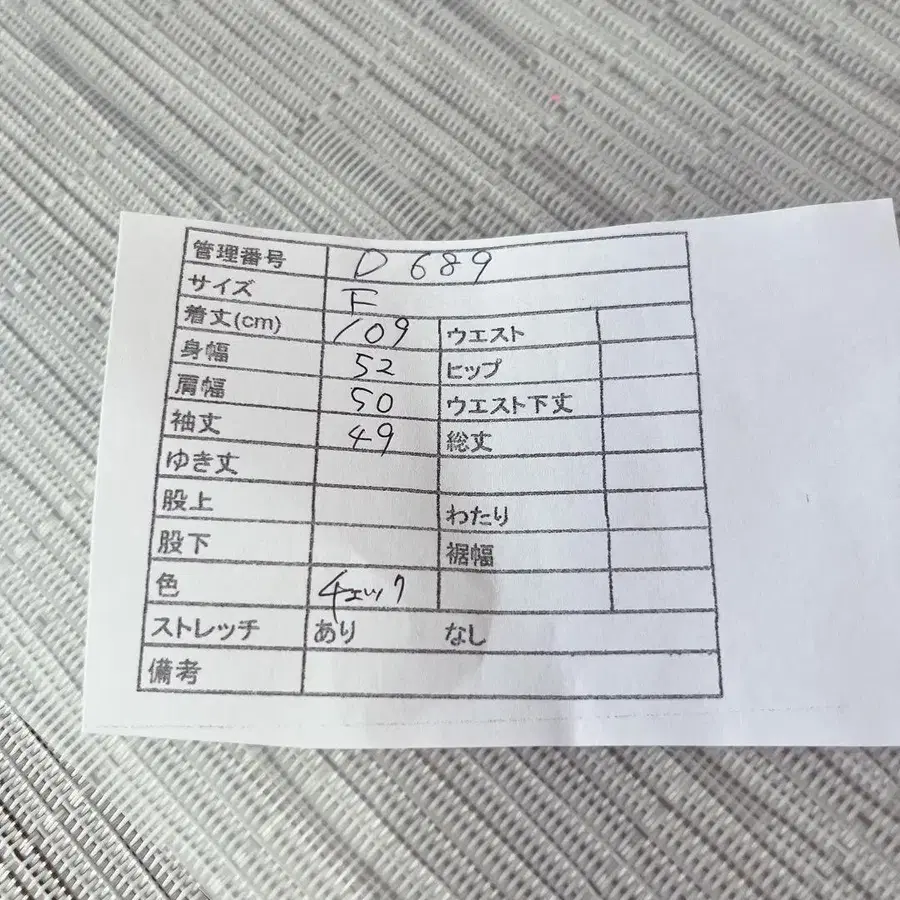 管理番号 D 689
サイズ F
着丈(cm) 109 ウエスト
身幅 52 ヒップ
肩幅 50 ウエスト下丈
袖丈 49 総丈
ゆき丈
股上 わたり
股下 裾幅
色 チェック
ストレッチ あり なし
備考